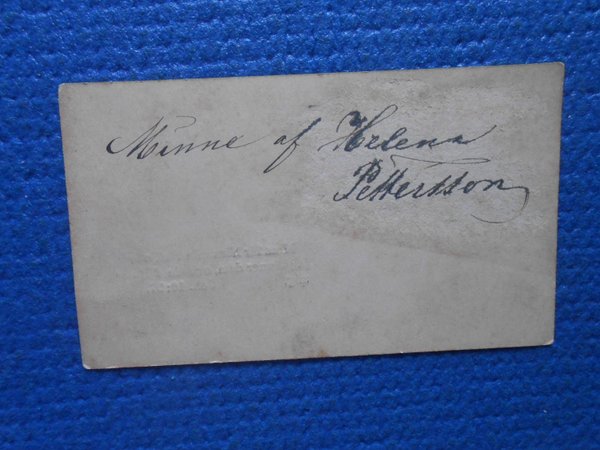 Minne af Helena
Pettersson